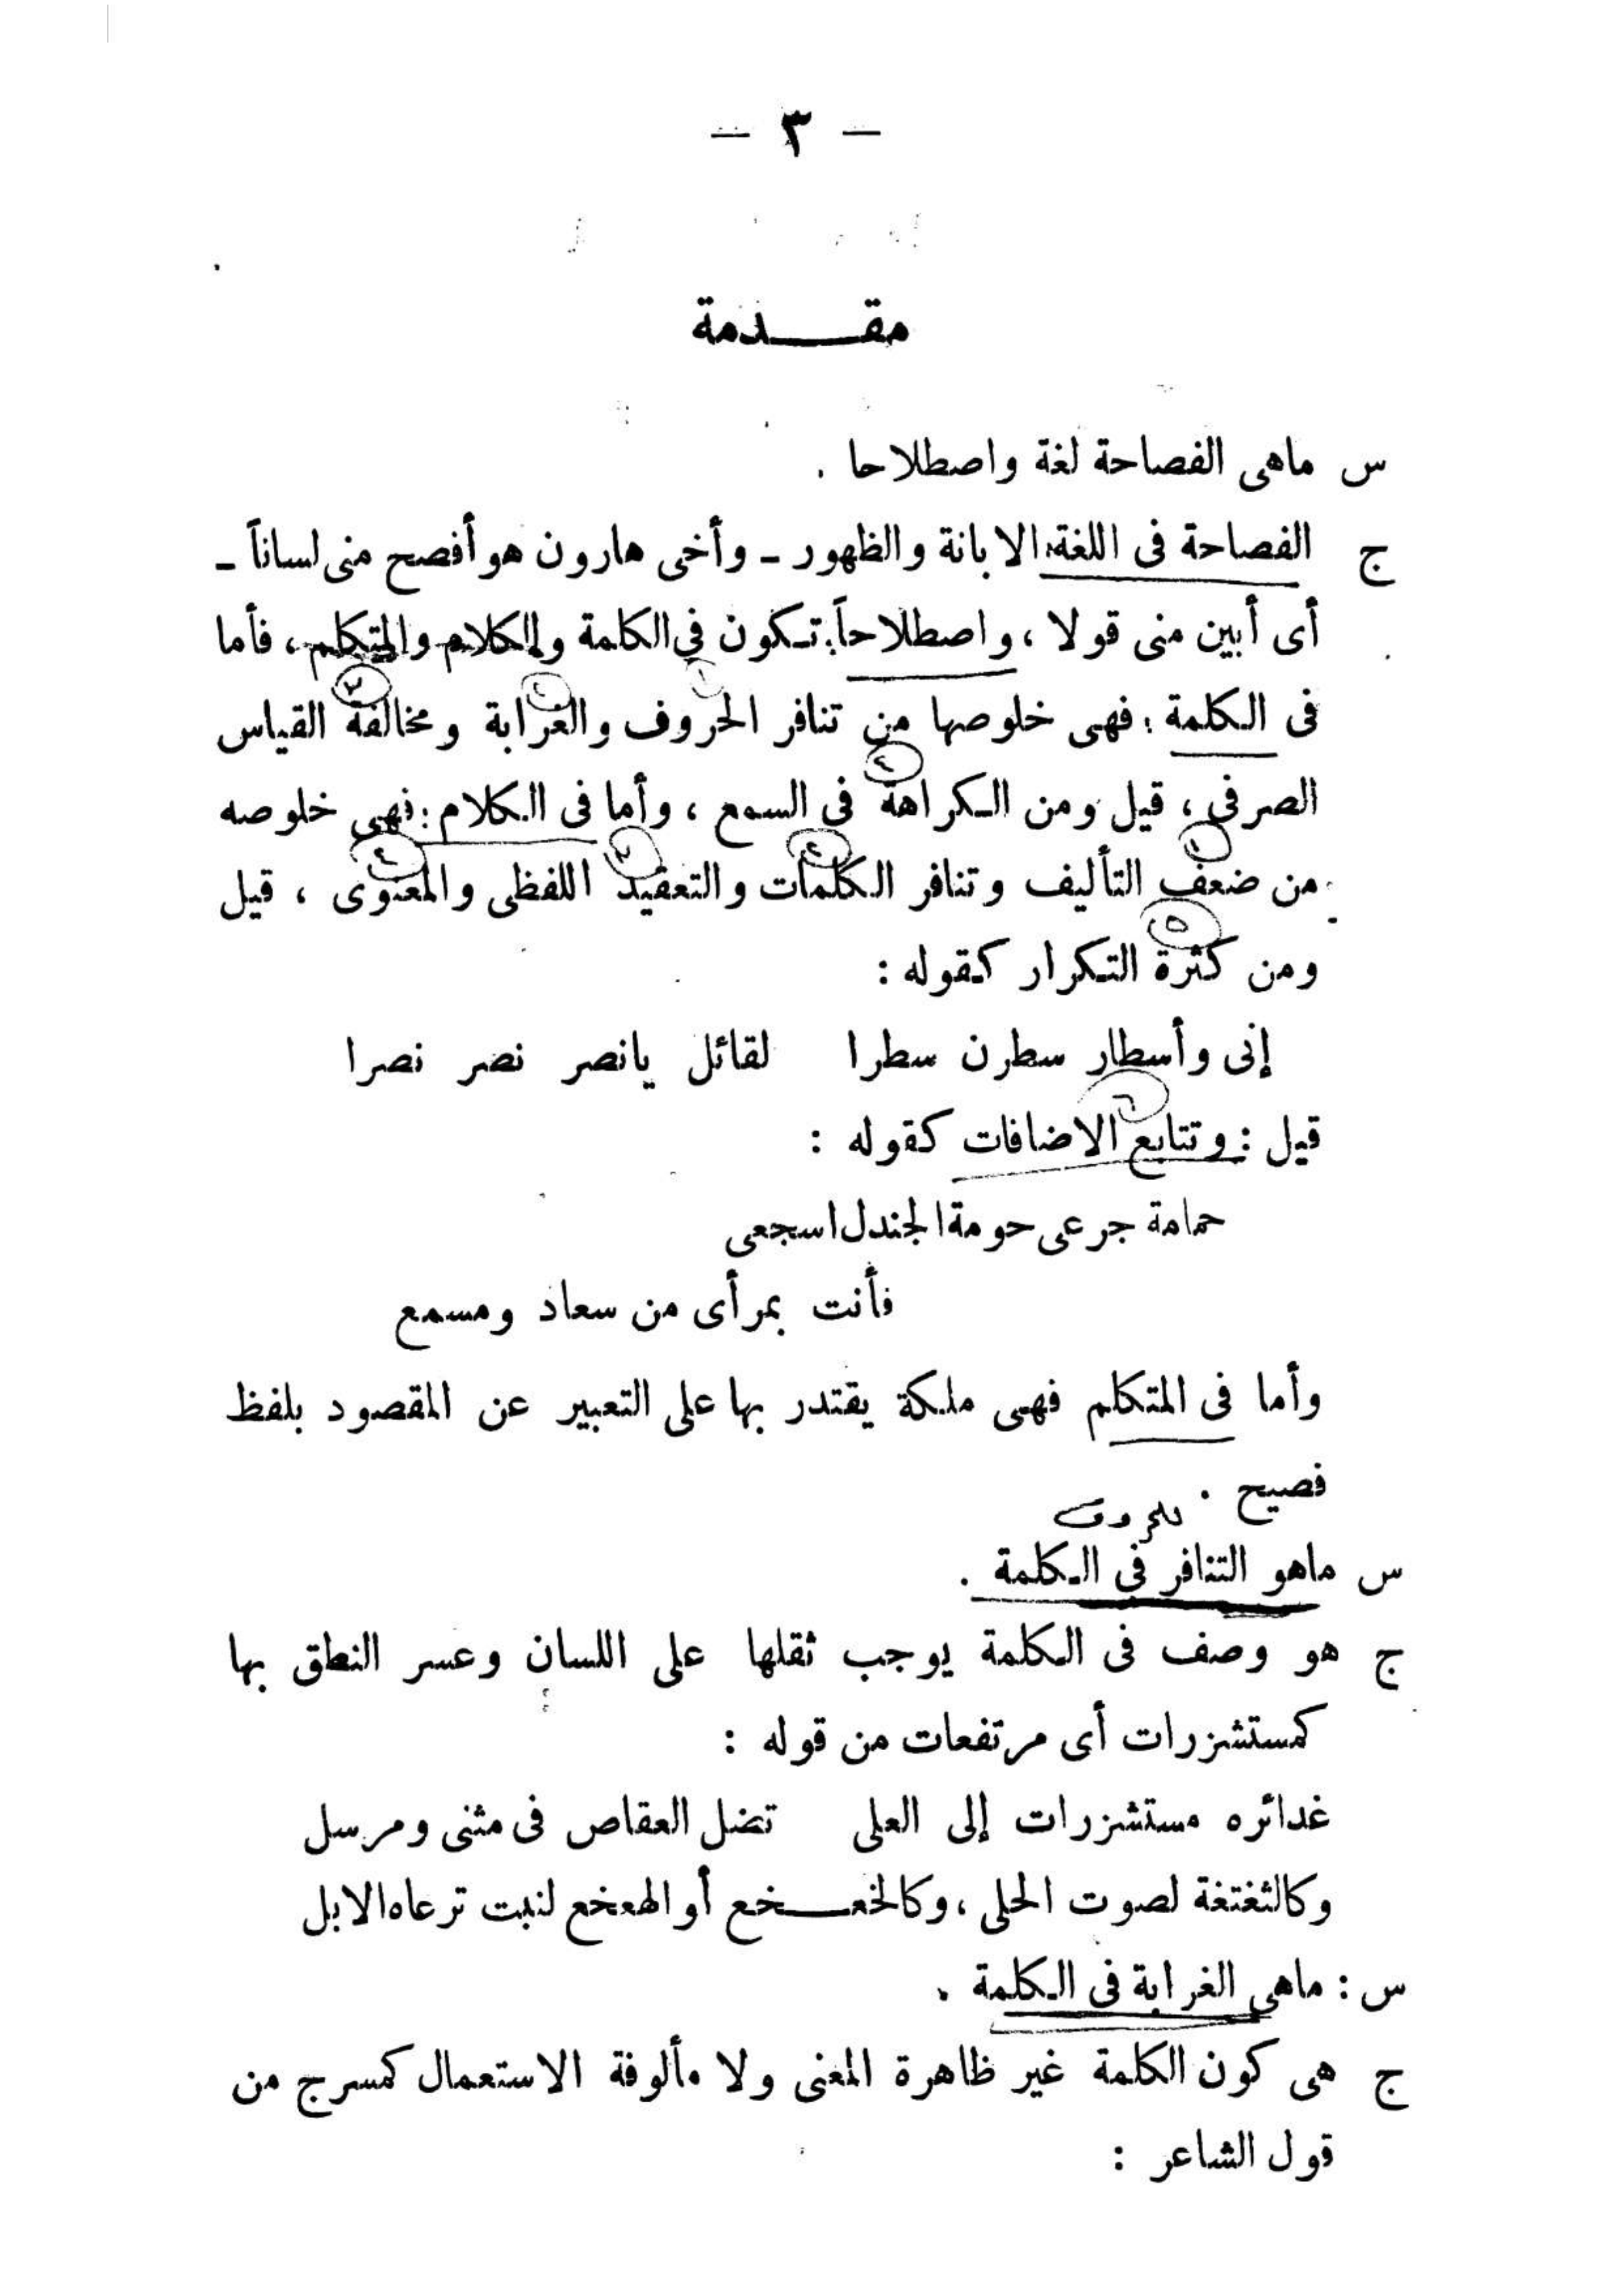 — ٣ —
مقـــدمة
س ماهى الفصاحة لغة واصطلاحا .
ج الفصاحة فى اللغة: الابانة والظهور ـ وأخى هارون هو أفصح منى لساناً ـ
أى أبين منى قولا ، واصطلاحاً: تكون فى الكلمة والكلام والمتكلم ، فأما
فى الكلمة : فهى خلوصها من تنافر الحروف والغرابة ومخالفة القياس
الصرفى ، قيل ومن الكراهة فى السمع ، وأما فى الكلام : فهى خلوصه
من ضعف التأليف وتنافر الكلمات والتعقيد اللفظى والمعنوى ، قيل
ومن كثرة التكرار كقوله :
إنى وأسطار سطرن سطرا لقائل يانصر نصر نصرا
قيل : وتتابع الاضافات كقوله :
حمامة جرعى حومة الجندل اسجعى
فأنت بمرأى من سعاد ومسمع
وأما فى المتكلم فهى ملكة يقتدر بها على التعبير عن المقصود بلفظ
فصيح .
س ماهو التنافر فى الكلمة .
ج هو وصف فى الكلمة يوجب ثقلها على اللسان وعسر النطق بها
كمستشزرات أى مرتفعات من قوله :
غدائره مستشزرات إلى العلى تضل العقاص فى مثنى ومرسل
وكالثغتغة لصوت الحلى ، وكالخعــخع أو الهعخع لنبت ترعاه الابل
س : ماهى الغرابة فى الكلمة .
ج هى كون الكلمة غير ظاهرة المعنى ولا مألوفة الاستعمال كمسرج من
قول الشاعر :